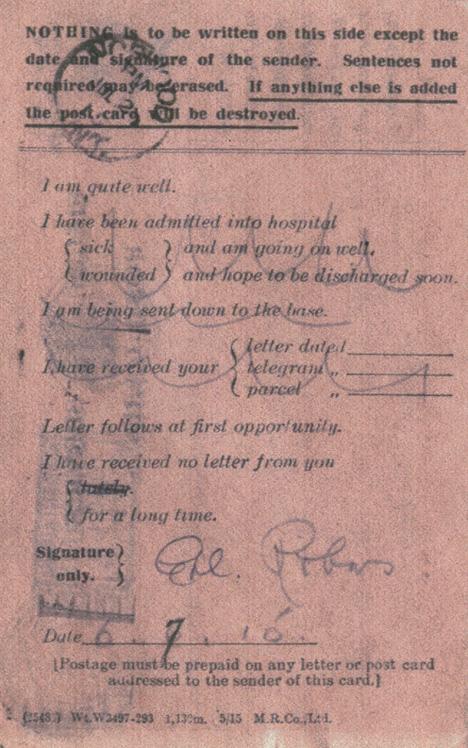 NOTHING is to be written on this side except the
date and signature of the sender. Sentences not
required may be erased. If anything else is added
the post card will be destroyed.
I am quite well.
I have been admitted into hospital
{ sick } and am going on well.
{ wounded } and hope to be discharged soon.
I am being sent down to the base.
I have received your { letter dated
telegram „
parcel „
Letter follows at first opportunity.
I have received no letter from you
{ lately.
{ for a long time.
Signature
only. }
Date 6. 7. 16.
[Postage must be prepaid on any letter or post card
addressed to the sender of this card.]
(2548.) Wt.W3497-293 1,13 m. 5/15 M.R.Co.,Ltd.